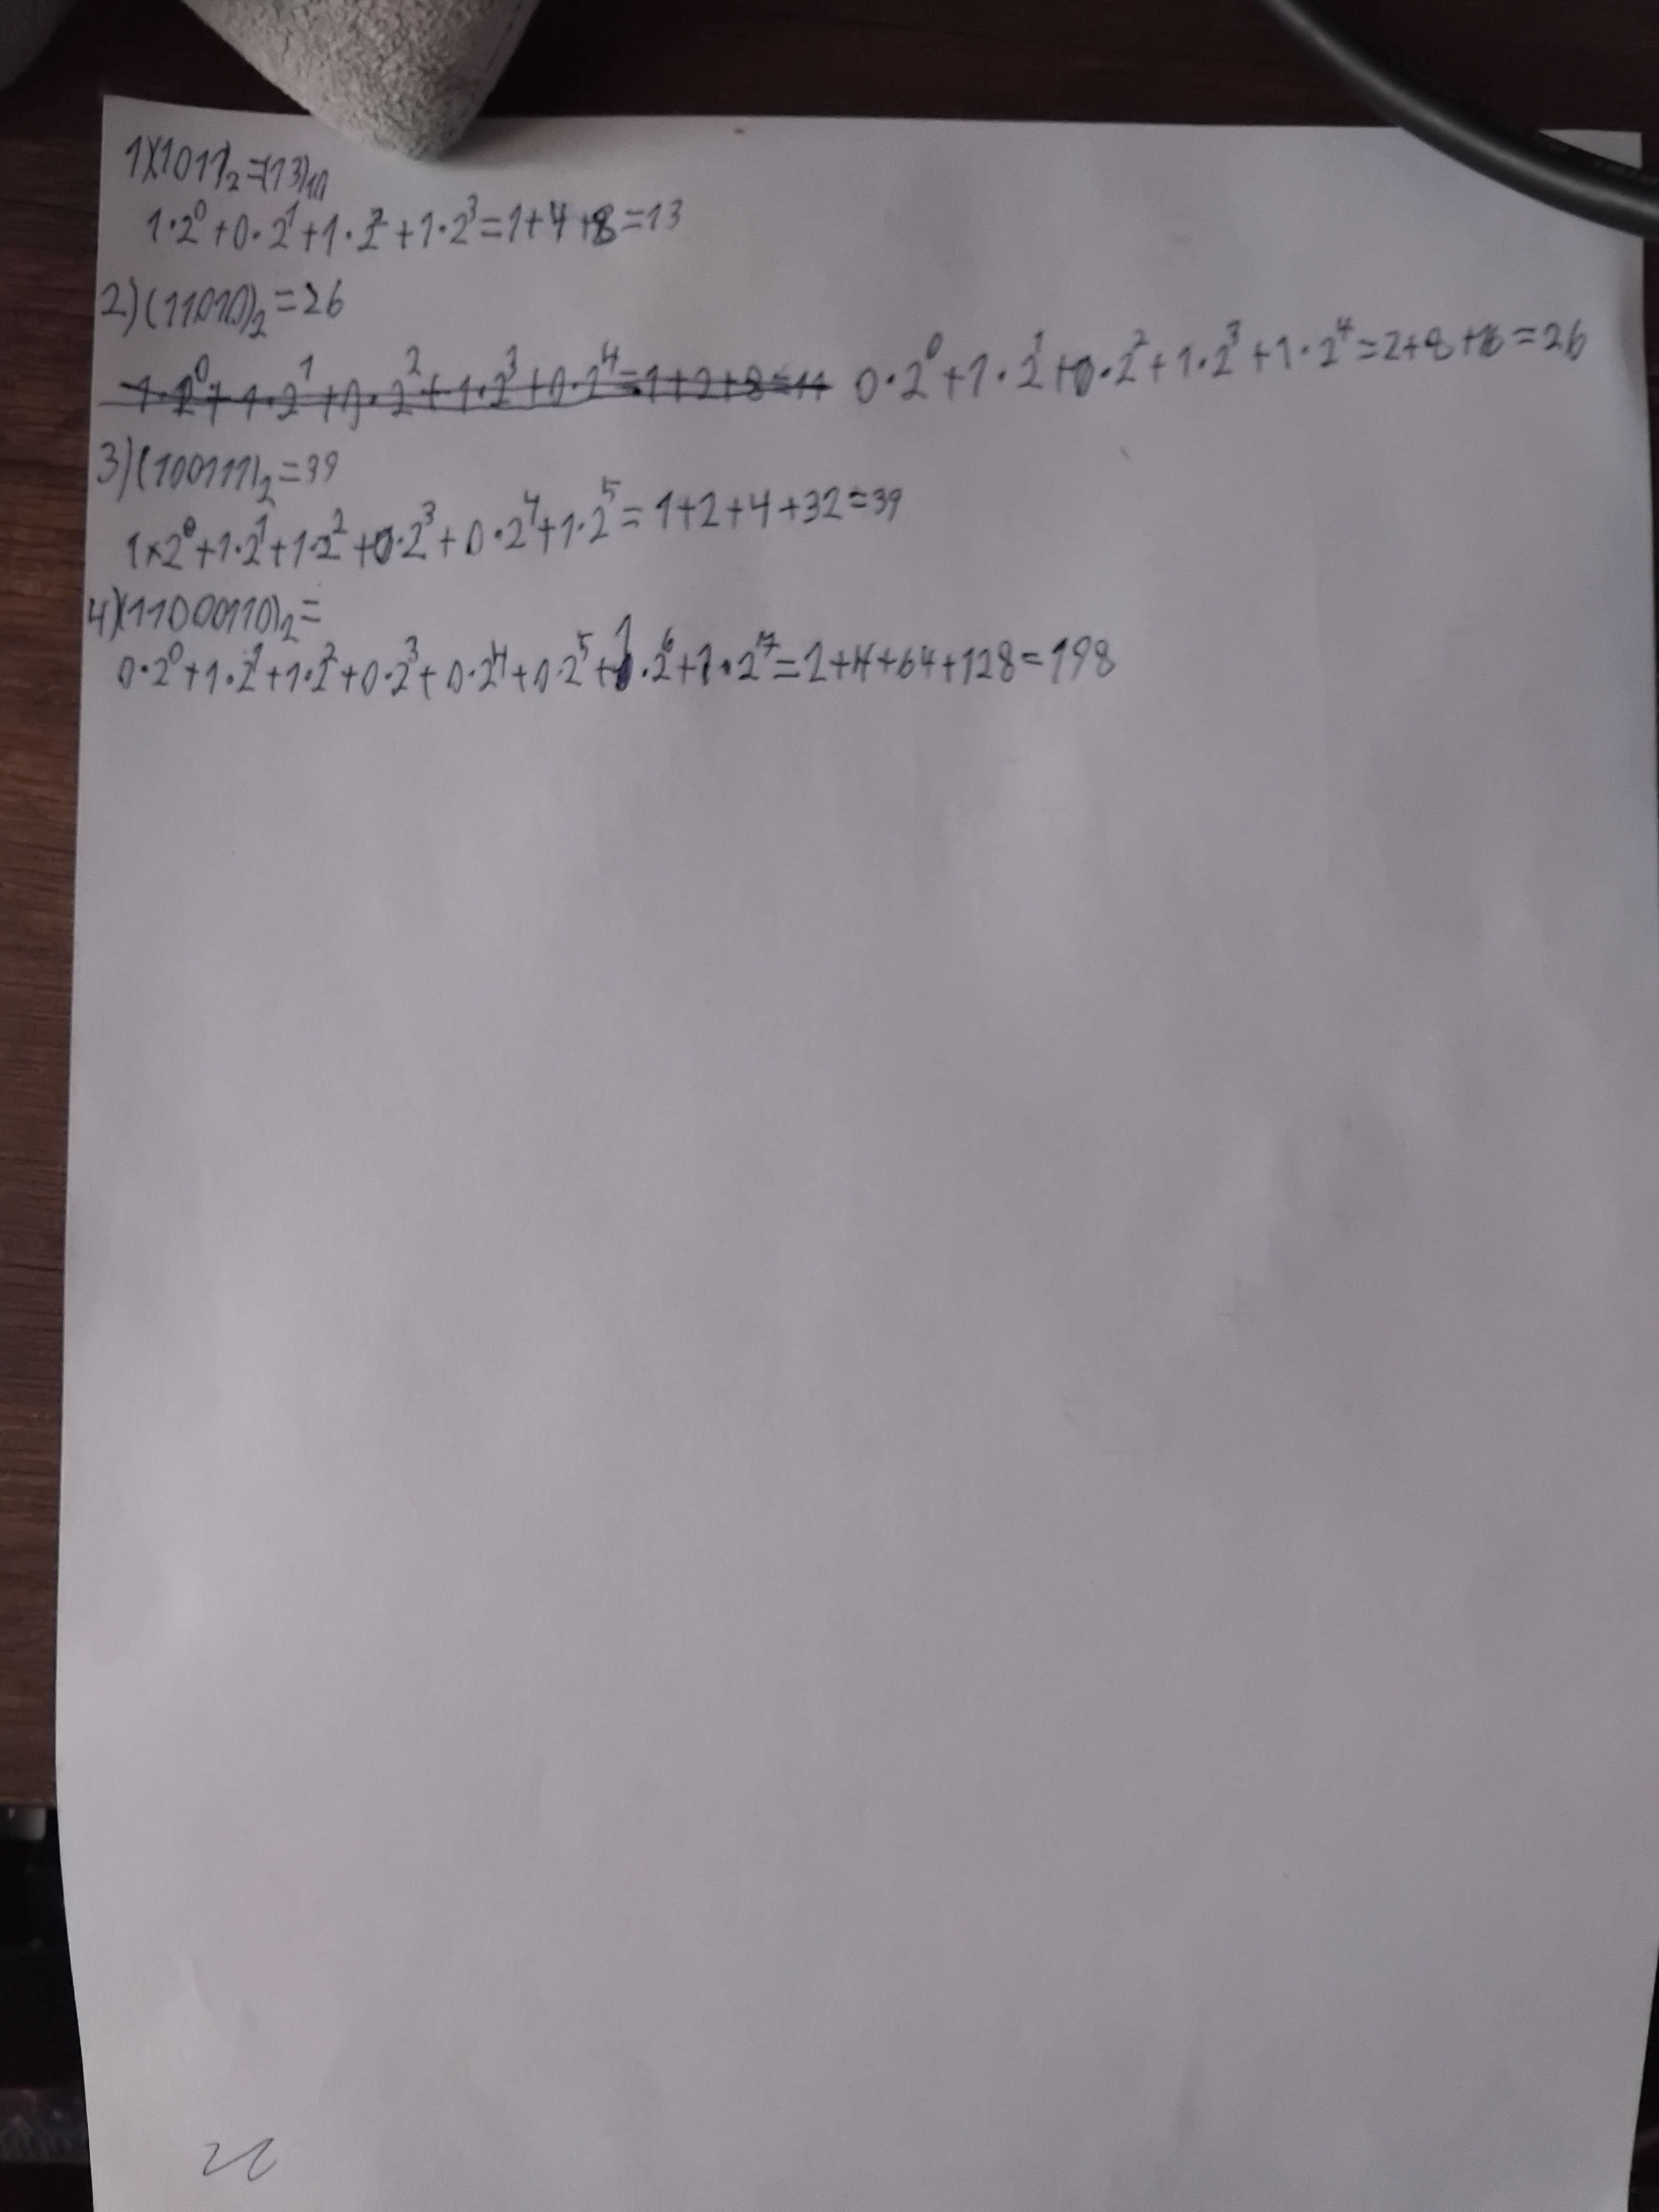 1)(1011)₂=(13)₁₀
1·2⁰+0·2¹+1·2²+1·2³=1+4+8=13
2)(11010)₂=26
1·2⁰+1·2¹+0·2²+1·2³+0·2⁴=1+2+8=11 0·2⁰+1·2¹+0·2²+1·2³+1·2⁴=2+8+16=26
3)(100111)₂=39
1×2⁰+1·2¹+1·2²+0·2³+0·2⁴+1·2⁵=1+2+4+32=39
4)(11000110)₂=
0·2⁰+1·2¹+1·2²+0·2³+0·2⁴+0·2⁵+1·2⁶+1·2⁷=2+4+64+128=198